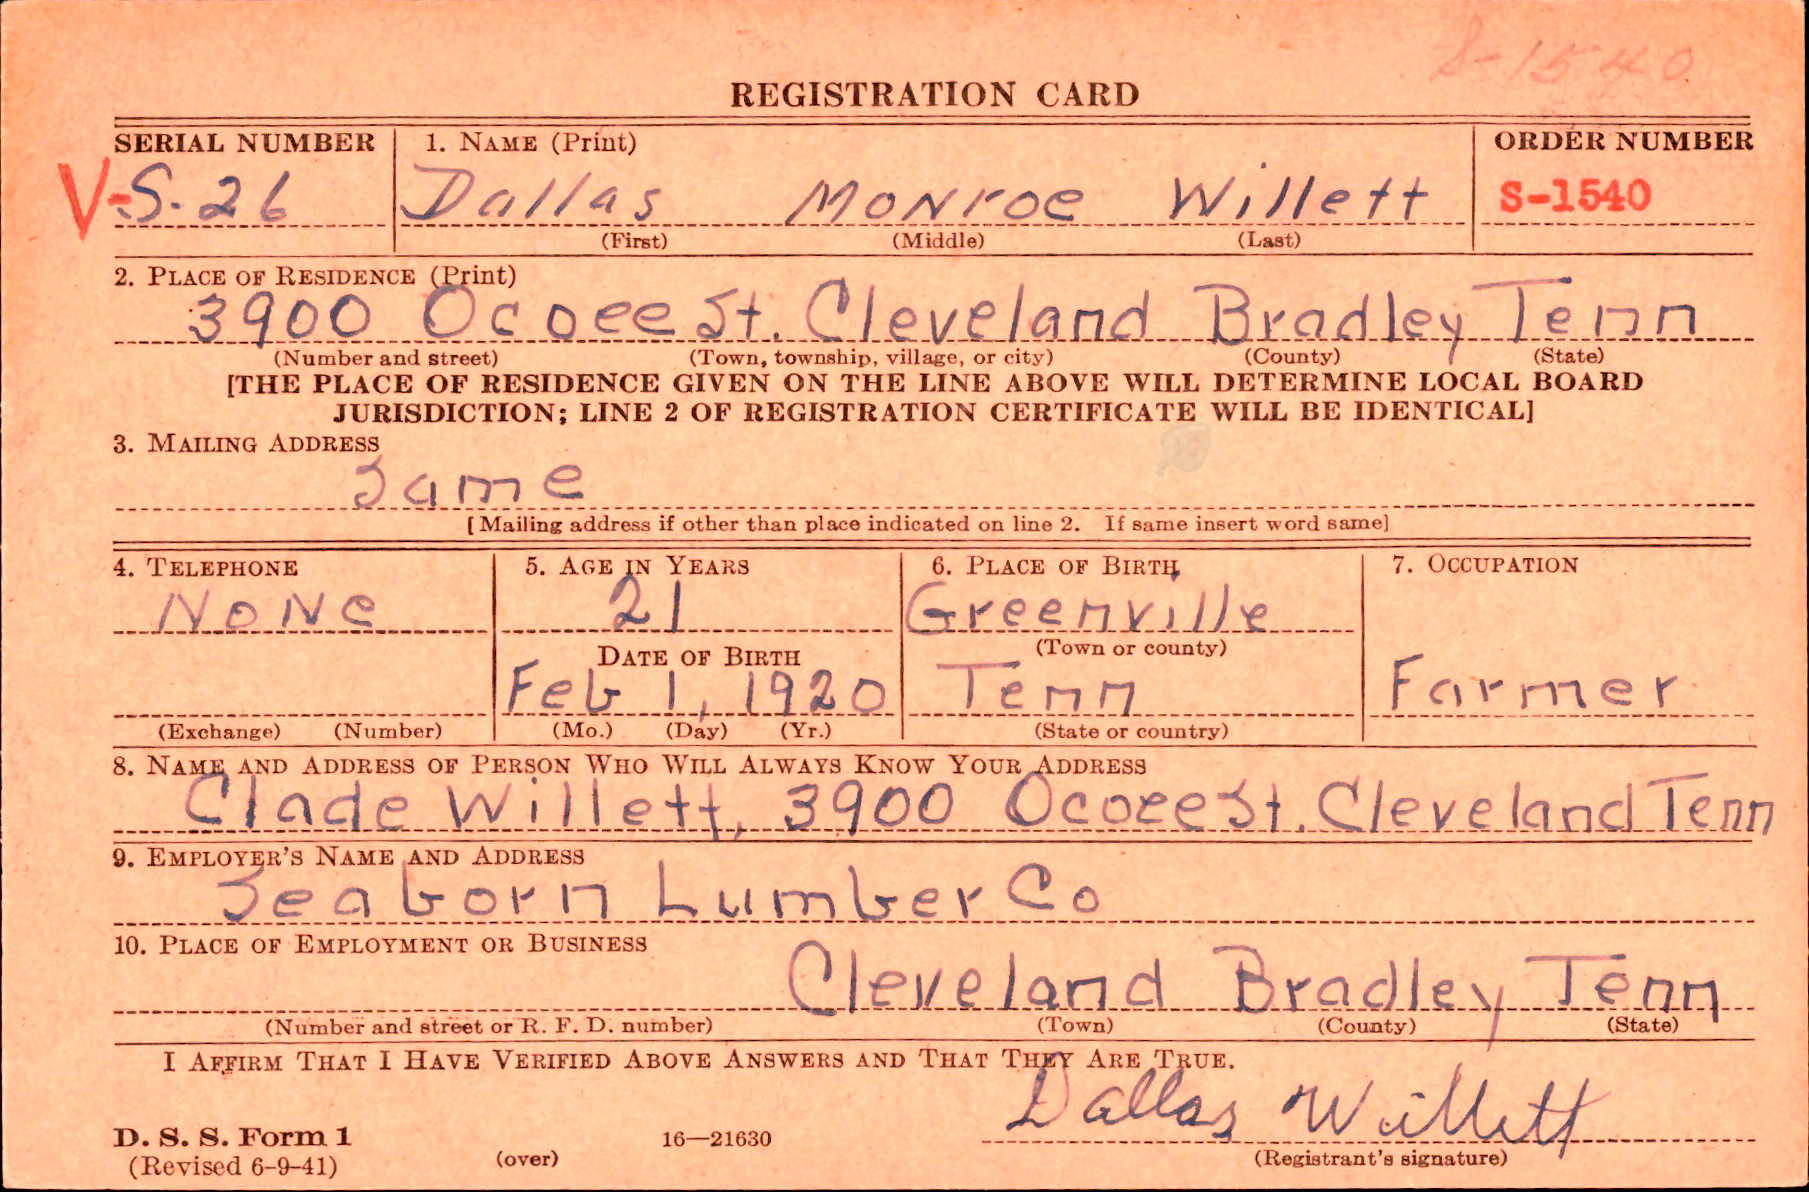 S-1540
REGISTRATION CARD
SERIAL NUMBER 1. NAME (Print) ORDER NUMBER
V-S-26 Dallas Monroe Willett S-1540
(First) (Middle) (Last)
2. PLACE OF RESIDENCE (Print)
3900 Ocoee St. Cleveland Bradley Tenn
(Number and street) (Town, township, village, or city) (County) (State)
[THE PLACE OF RESIDENCE GIVEN ON THE LINE ABOVE WILL DETERMINE LOCAL BOARD
JURISDICTION; LINE 2 OF REGISTRATION CERTIFICATE WILL BE IDENTICAL]
3. MAILING ADDRESS
Same
[Mailing address if other than place indicated on line 2. If same insert word same]
4. TELEPHONE 5. AGE IN YEARS 6. PLACE OF BIRTH 7. OCCUPATION
None 21 Greenville
(Town or county)
DATE OF BIRTH
Feb 1, 1920 Tenn Farmer
(Exchange) (Number) (Mo.) (Day) (Yr.) (State or country)
8. NAME AND ADDRESS OF PERSON WHO WILL ALWAYS KNOW YOUR ADDRESS
Clade Willett, 3900 Ocoee St. Cleveland Tenn
9. EMPLOYER'S NAME AND ADDRESS
Seaborn Lumber Co
10. PLACE OF EMPLOYMENT OR BUSINESS
Cleveland Bradley Tenn
(Number and street or R. F. D. number) (Town) (County) (State)
I AFFIRM THAT I HAVE VERIFIED ABOVE ANSWERS AND THAT THEY ARE TRUE.
Dallas Willett
D. S. S. Form 1
(Revised 6-9-41) (over) 16—21630 (Registrant's signature)